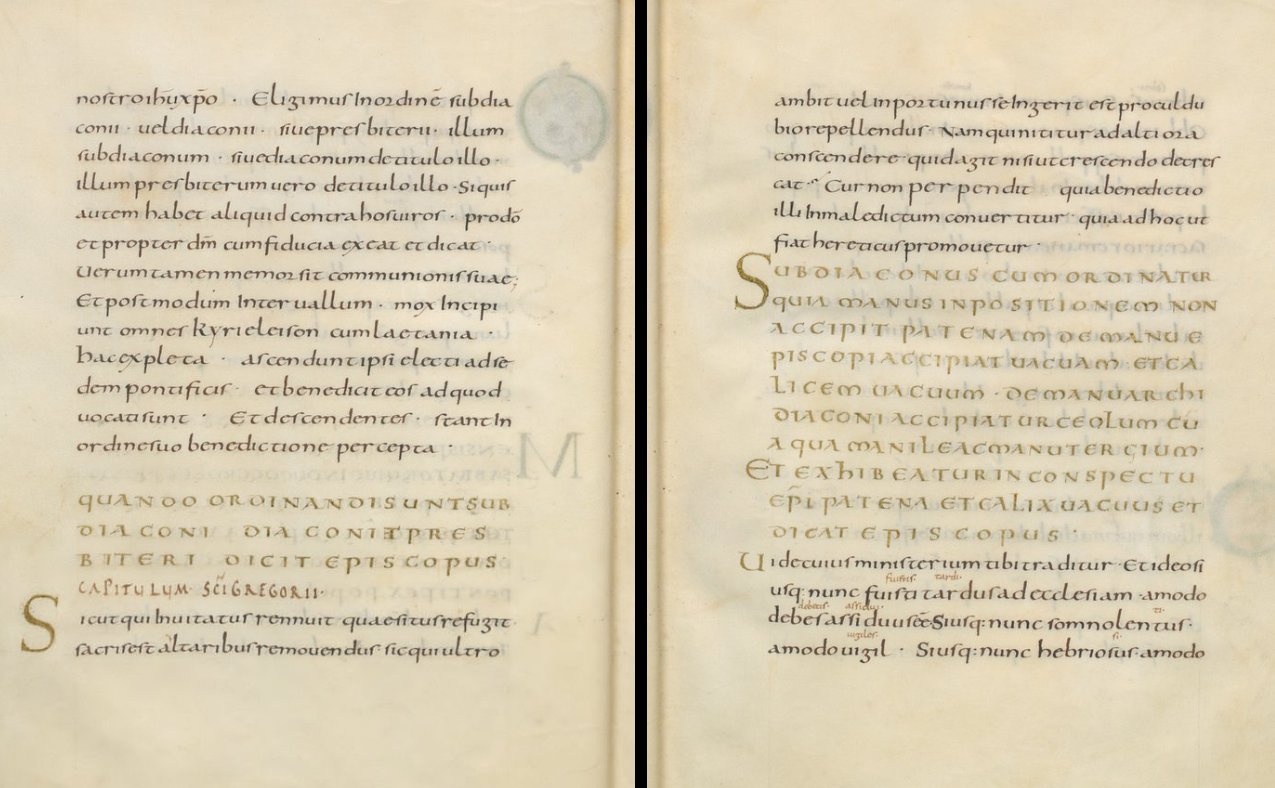 nostro ihu xpo · Eligimus In ordinē subdia
conii · uel diaconii · siue presbiterii · illum
subdiaconum · siue diaconum de titulo illo ·
illum presbiterum uero de titulo illo · Siquis
autem habet aliquid contra hos uiros · prodō
et propter dm̄ cum fiducia exeat et dicat ·
Uerum tamen memor sit communionis suae;
Et postmodum Inter uallum · mox Incipi
unt omnes kyrieleison cum laetania ·
hac expleta · ascendunt ipsi electi ad se
dem pontificis · et benedicit eos ad quod
uocati sunt · Et descendentes · stant In
ordine suo benedictione percepta ·
QUANDO ORDINANDI SUNT SUB
DIACONI DIACONI ET PRES
BITERI DICIT EPISCOPUS·
CAPITULUM· SCI GREGORII·
Sicut qui Inuitatus rennuit quaesitus refugit·
sacris est altaribus remouendus sic qui ultro
ambit uel Inportunus se Ingerit est procul du
bio repellendus· Nam qui nititur ad altiora
conscendere quid agit nisi ut crescendo decres
cat· Cur non perpendit quia benedictio
illi In maledictum conuertitur· quia ad hoc ut
fiat hereticus promouetur·
SUBDIACONUS CUM ORDINATUR
QUIA MANUS INPOSITIONEM NON
ACCIPIT PATENAM DE MANU E
PISCOPI ACCIPIAT UACUAM· ET CA
LICEM UACUUM· DE MANU ARCHI
DIACONI ACCIPIAT URCEOLUM CŪ
AQUA MANILE AC MANUTERGIUM·
ET EXHIBEATUR IN CONSPECTU
EPI PATENA ET CALIX UACUUS ET
DICAT EPISCOPUS·
Uide cuius ministerium tibi traditur· Et ideo si
fuistis· tardi·
usq: nunc fuisti tardus ad ecclesiam· amodo
debetis· assidui· ti·
debes assiduus eē· Si usq: nunc somnolentus·
uigiles· si·
amodo uigil · Si usq: nunc hebriosus· amodo